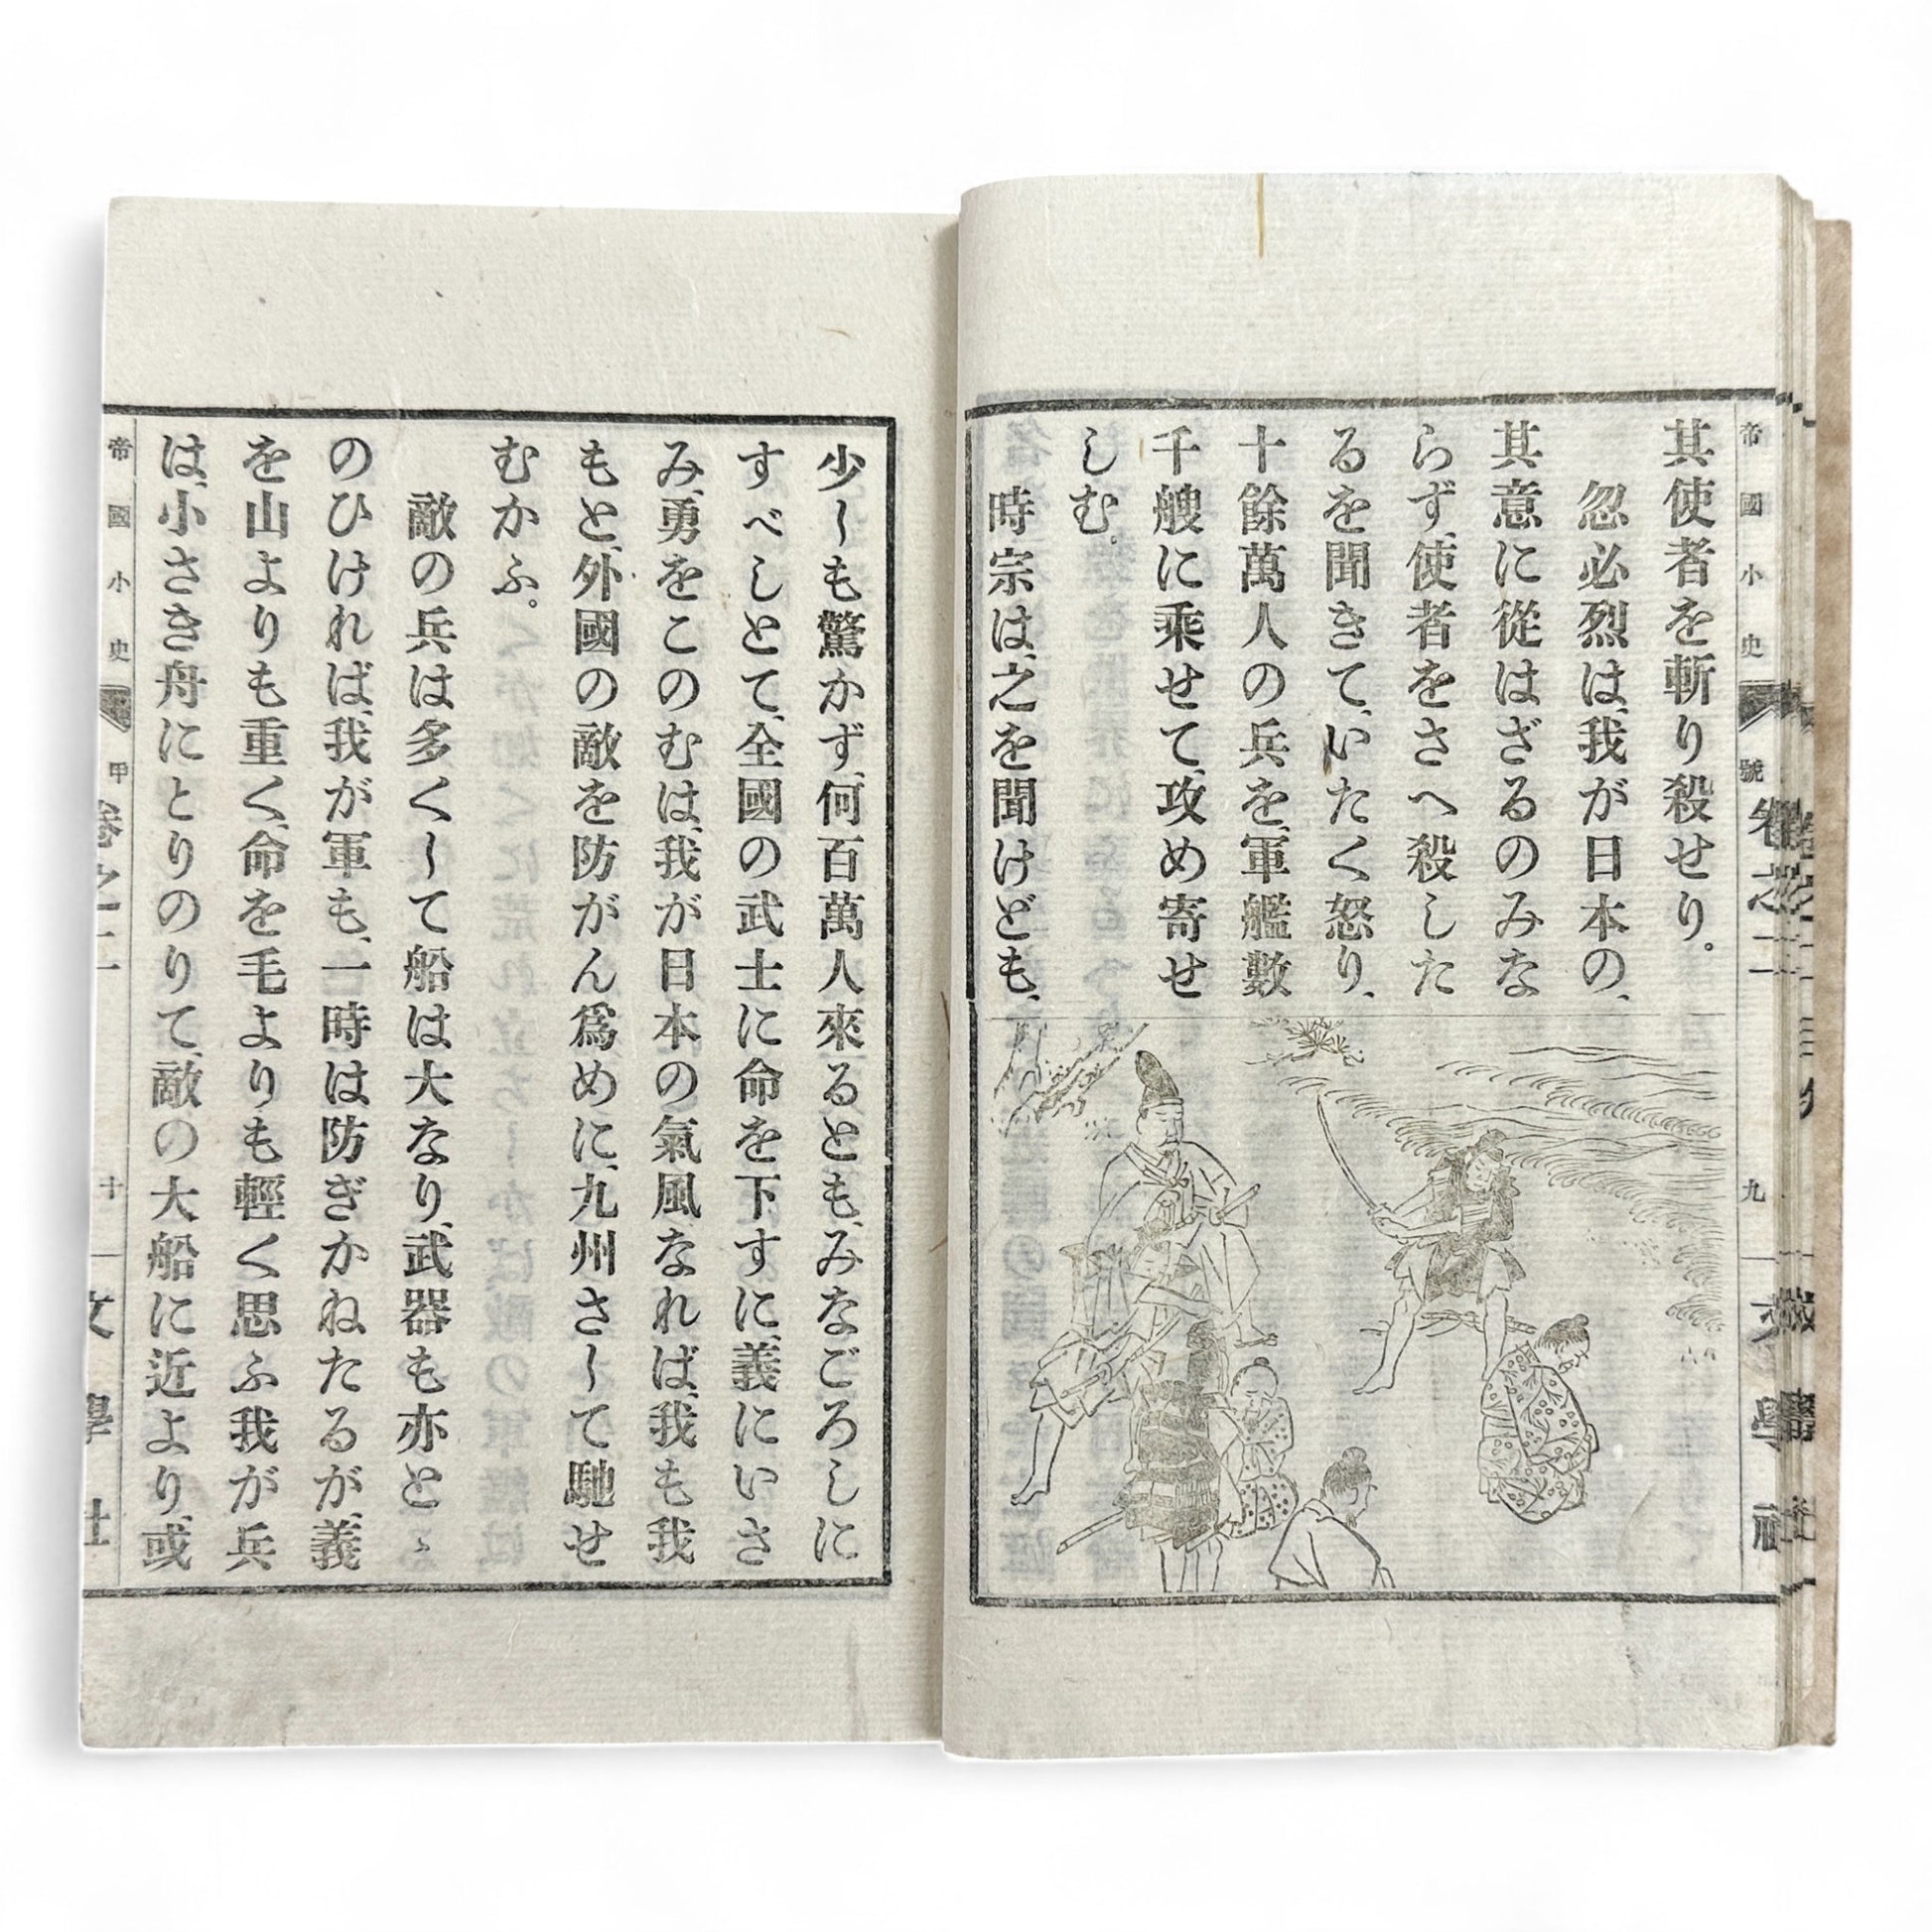 帝國小史 號 卷之二 九 文學社
其使者を斬り殺せり。
忽必烈は、我が日本の、
其意に從はざるのみな
らず、使者をさへ殺した
るを聞きて、いたく怒り、
十餘萬人の兵を、軍艦數
千艘に乘せて、攻め寄せ
しむ。
時宗は、之を聞けども、
少しも驚かず、何百萬人來るとも、みなごろしに
すべしとて、全國の武士に命を下すに、義にいさ
み、勇をこのむは、我が日本の氣風なれば、我も我
もと、外國の敵を防がん爲めに、九州さして馳せ
むかふ。
敵の兵は多くして船は大なり、武器も亦とゝ
のひければ、我が軍も、一時は防ぎかねたるが、義
を山よりも重く、命を毛よりも輕く思ふ我が兵
は、小さき舟にとりのりて、敵の大船に近より、或
帝國小史 甲 卷之二 十 文學社